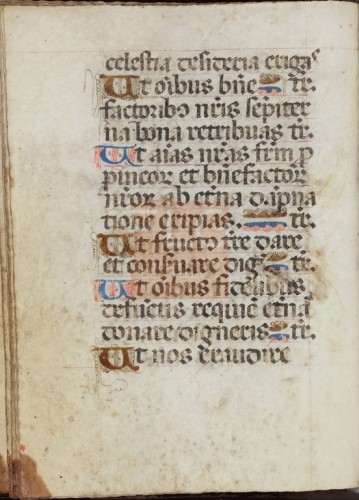 celestia desideria erigas
Ut oībus bn̄e t̄r.
factoribꝰ nr̄is sēpiter
na bona retribuas t̄r.
Ut aīas nr̄as fr̄m ꝓ
pinquoꝝ et bn̄efactoꝝ
nr̄oꝝ ab et̄na dāpna
tione eripias. t̄r.
Ut fructꝰ t̄re dare
et conẜuare dig t̄r.
Ut oībus fidelibus
defūctis requiē et̄nā
donare digneris t̄r.
Ut nos exaudire